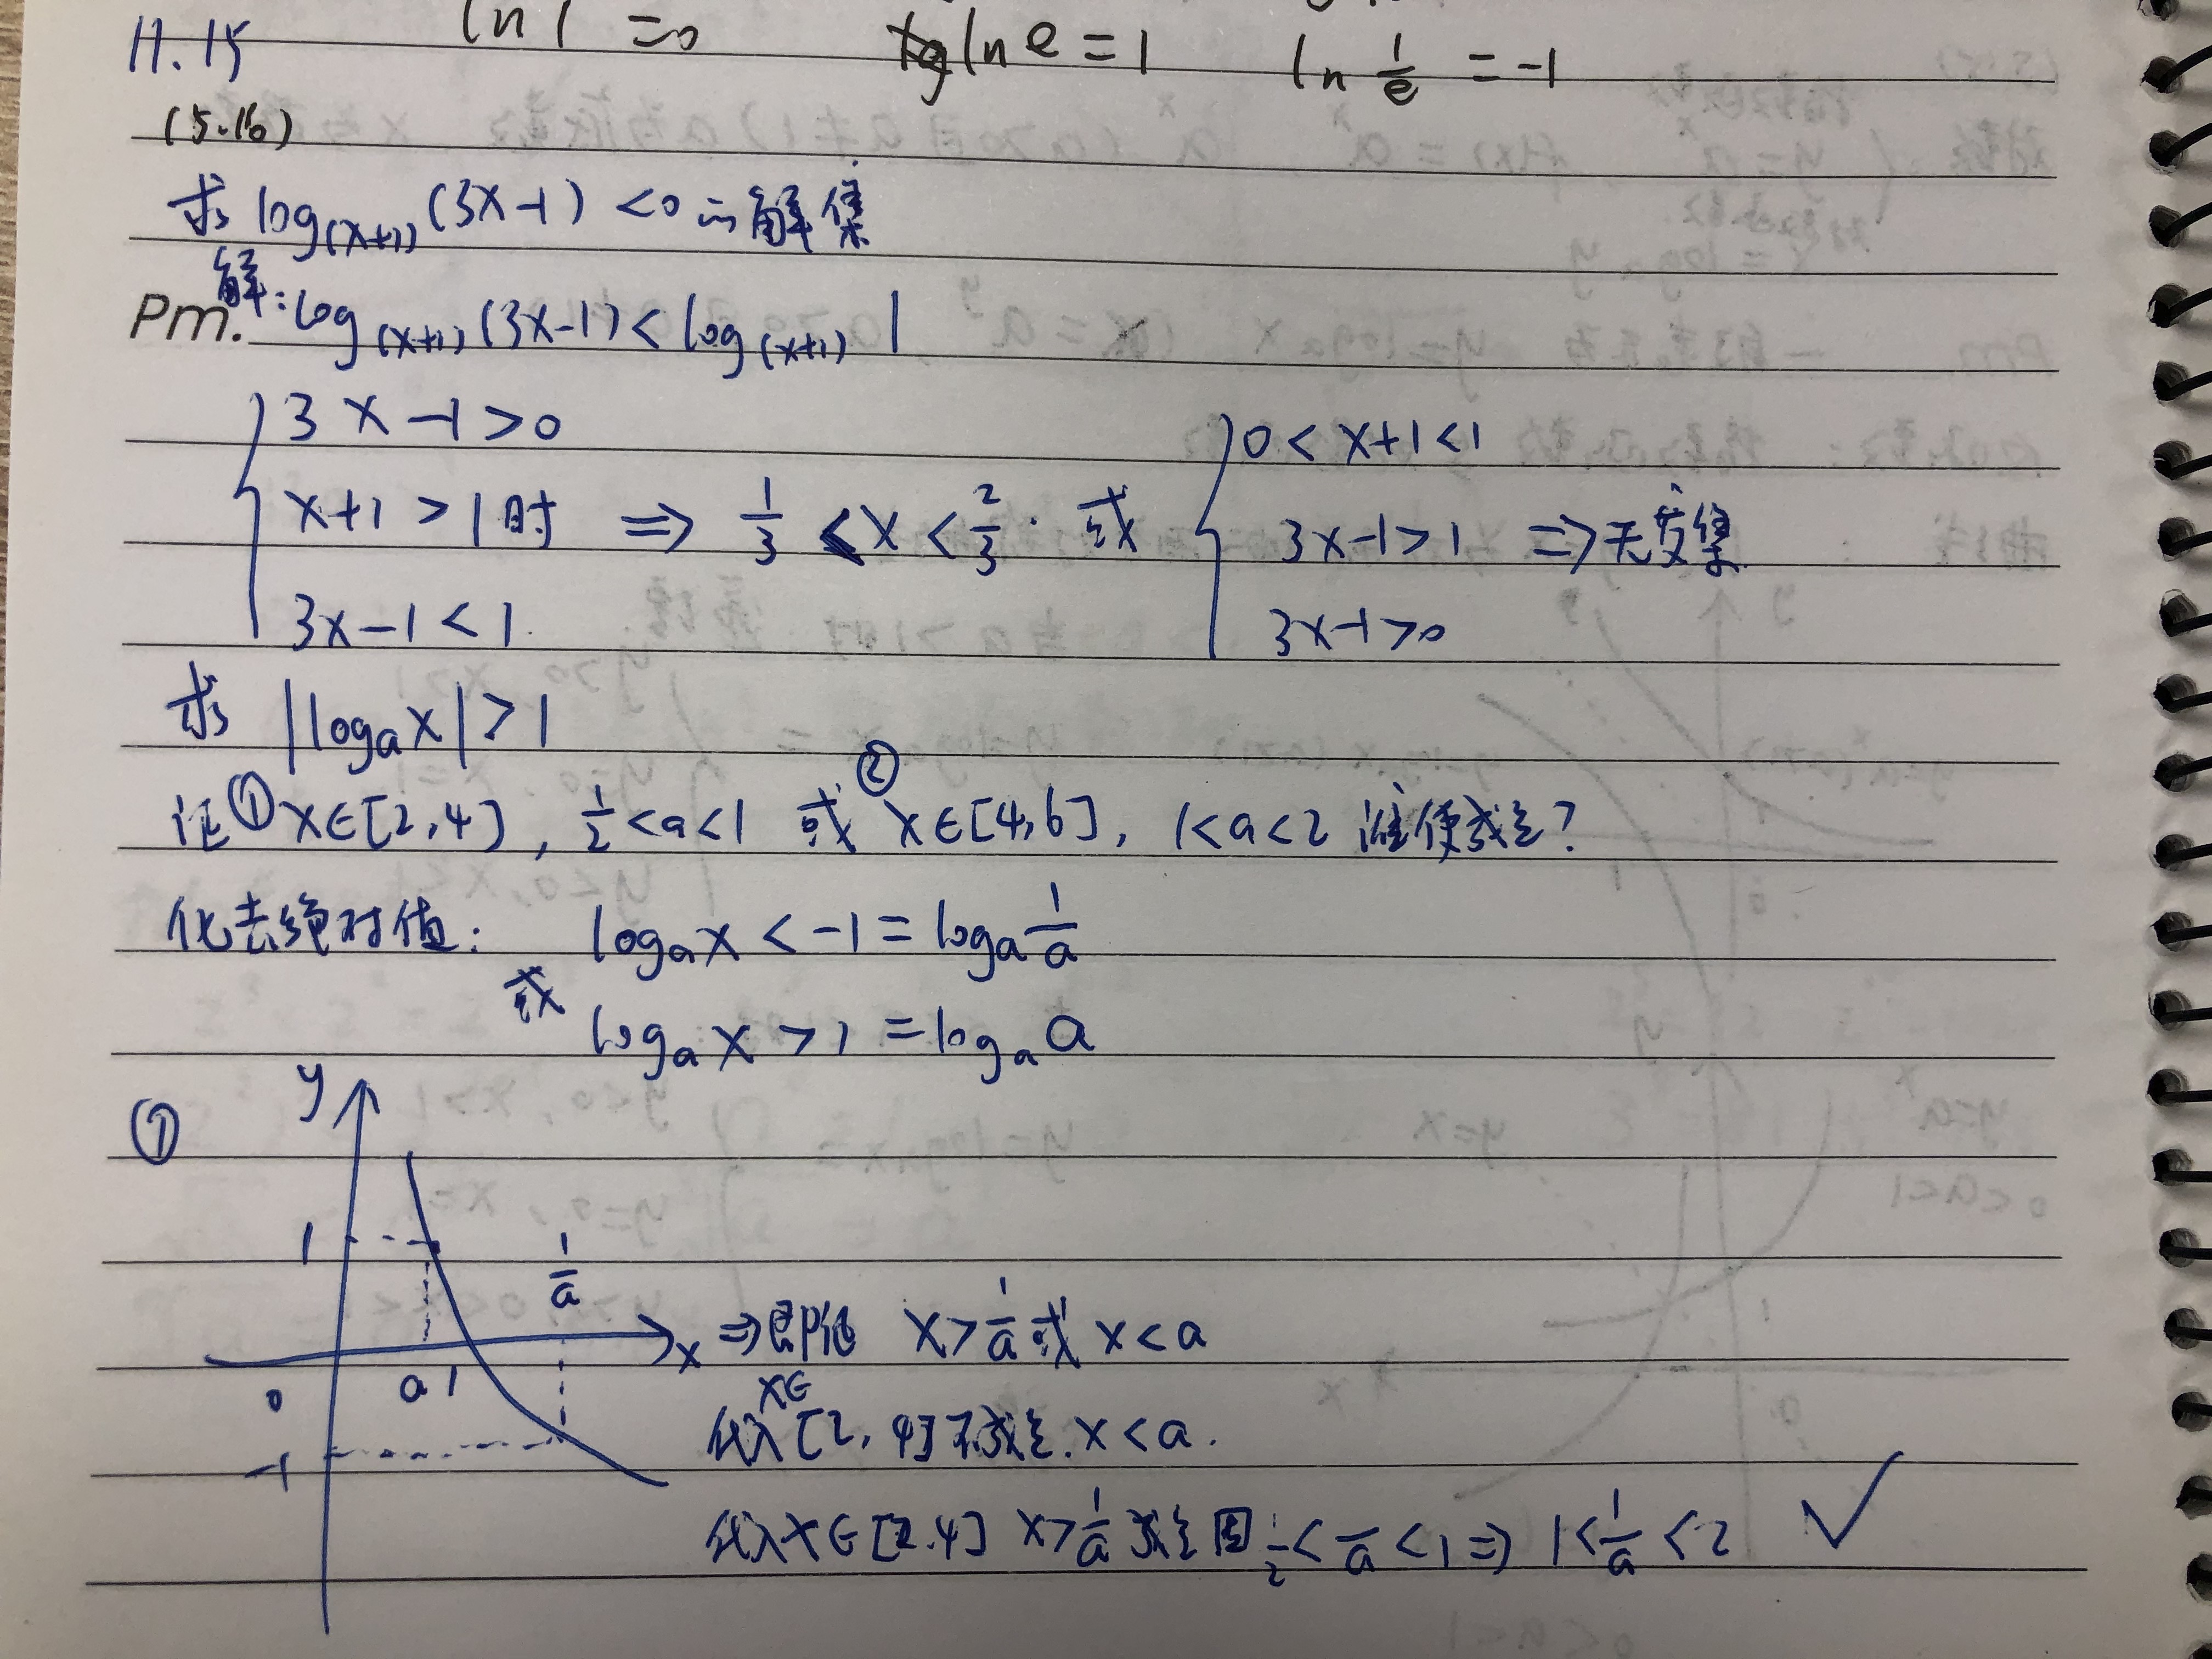 11.15 ln 1 =0 ln e = 1 ln 1/e = -1
(5.16)
求 log(x+1) (3x-1) <0 的解集
解: log(x+1) (3x-1) < log(x+1) 1
Pm.
{ 3x-1>0
x+1>1时
3x-1<1
=> 1/3 < x < 2/3 . 或
{ 0<x+1<1
3x-1>1
3x-1>0
=> 无交集
求 |logₐx|>1
证 ① x∈[2,4] , 1/2<a<1 或 ② x∈[4,6] , 1<a<2 谁使成立?
化去绝对值: logₐx < -1 = logₐ 1/a
或 logₐx > 1 = logₐ a
①
y
1
1/a
x
0 a 1
-1
=> 即证 x> 1/a 或 x<a
代入 x∈[2,4] 不成立. x<a.
代入 x∈[2.4] x> 1/a 成立 因 1/2 < a <1 => 1< 1/a <2 ✓